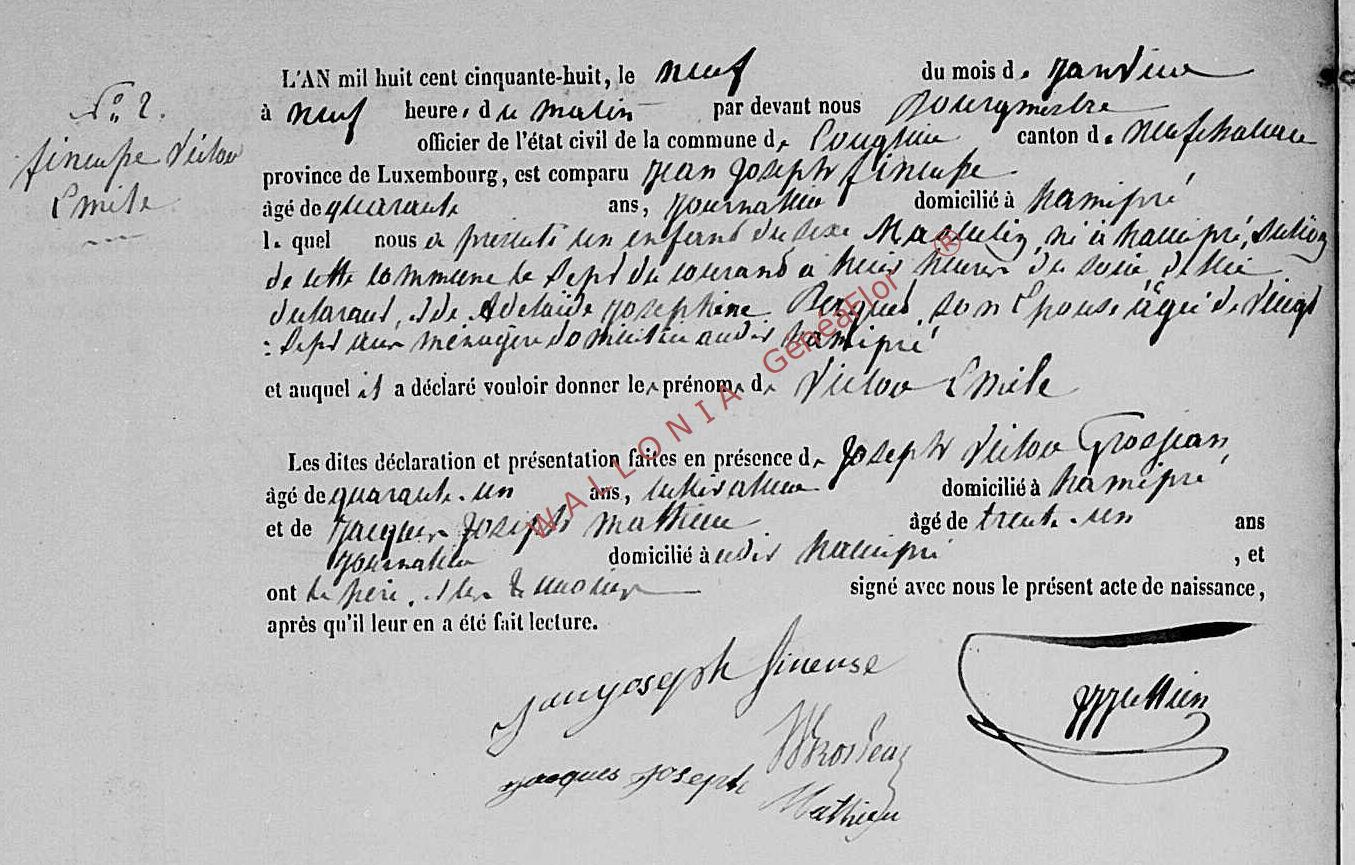 N° 2.
fineuse Victor
Emile
L'AN mil huit cent cinquante-huit, le neuf du mois de Janvier
à neuf heures du matin par devant nous Bourgmestre
officier de l'état civil de la commune de Longlier canton de neufchateau
province de Luxembourg, est comparu Jean Joseph fineuse
âgé de quarante ans, Journalier domicilié à hamipré
le quel nous a présenté un enfant du sexe Masculin, né à hamipré, section
de cette commune le sept du courant à huit heures du soir, de lui
déclarant, et de Adelaide Josephine son Epouse âgée de Vingt
: Sept ans ménagère domiciliée audit hamipré
et auquel il a déclaré vouloir donner les prénoms de Victor Emile
Les dites déclaration et présentation faites en présence de Joseph Victor Grosjean
âgé de quarante-un ans, cultivateur domicilié à hamipré
et de Jacques Joseph Mathieu âgé de trente-un ans
Journalier domicilié à udit hamipré , et
ont le père et les témoins signé avec nous le présent acte de naissance,
après qu'il leur en a été fait lecture.
Jean Joseph fineuse
Jacques Joseph Mathieu
WALLONIA GénéaFlor ®